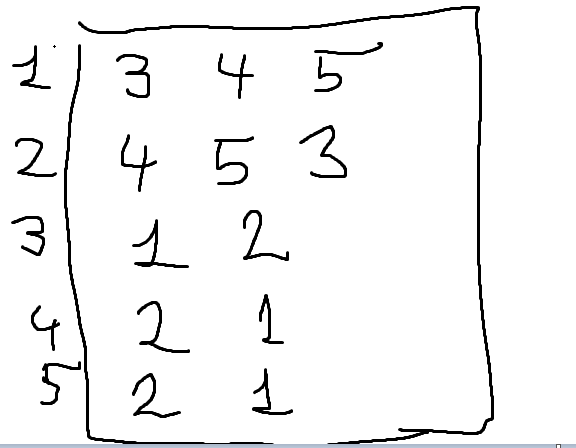 1 3 4 5
2 4 5 3
3 1 2
4 2 1
5 2 1